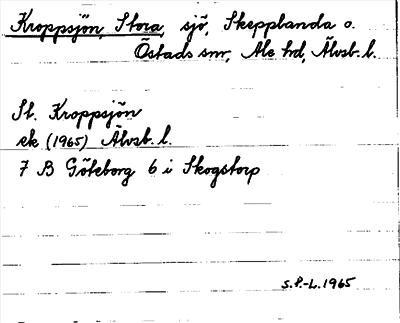 Kroppsjön, Stora, sjö, Skepplanda o.
Östads snr, Ale hd, Älvsb. l.
St. Kroppsjön
ek (1965) Älvsb. l.
7 B Göteborg 6 i Skogstorp
S.P.-L. 1965